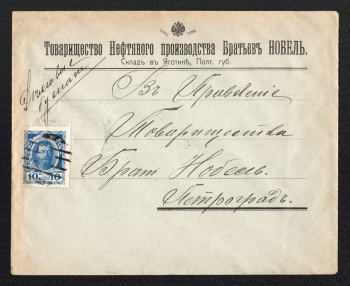 Товарищество Нефтяного производства Братьевъ НОБЕЛЬ.
Складъ въ Яготинѣ, Полт. губ.
Въ Правленiе
Товарищества
Брат Нобель.
Петроградъ.
10 10